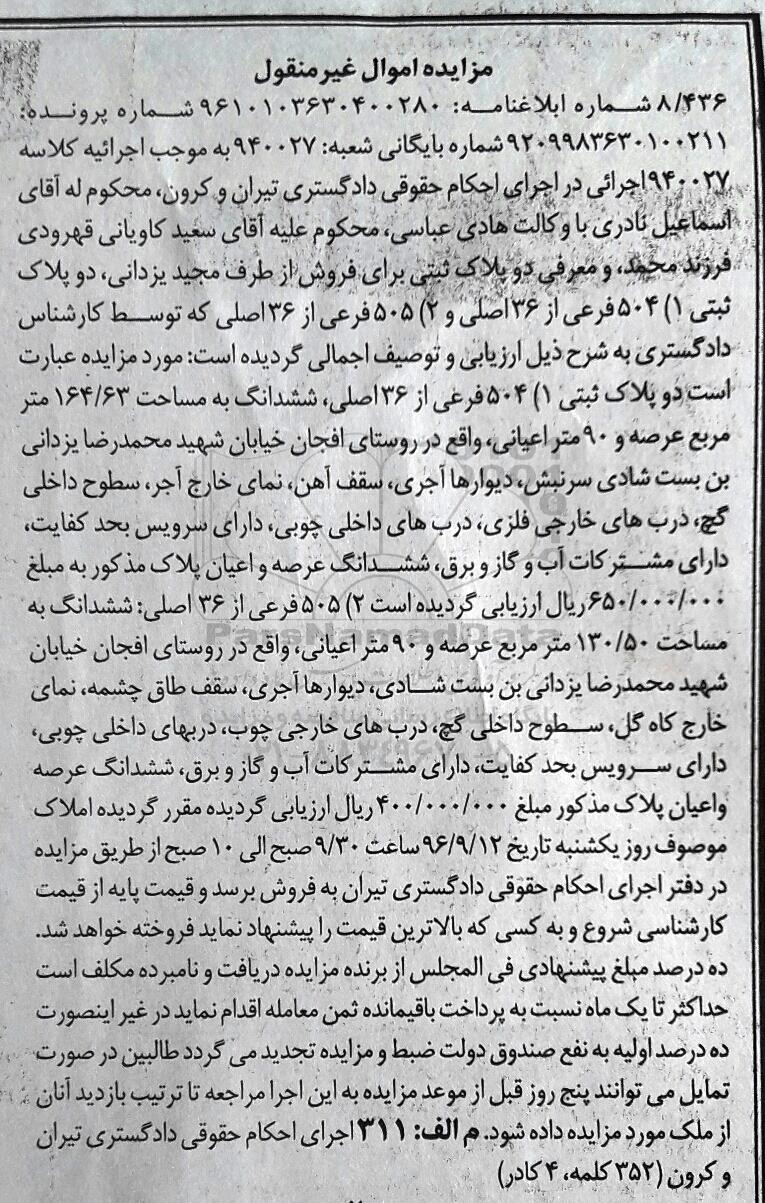 مزایده اموال غیرمنقول
۸/۴۳۶ شماره ابلاغنامه: ۹۶۱۰۱۰۳۶۳۰۴۰۰۲۸۰ شماره پرونده:
۹۲۰۹۹۸۳۶۳۰۱۰۰۲۱۱ شماره بایگانی شعبه: ۹۴۰۰۲۷ به موجب اجرائیه کلاسه
۹۴۰۰۲۷ اجرائی در اجرای احکام حقوقی دادگستری تیران و کرون، محکوم له آقای
اسماعیل نادری با وکالت هادی عباسی، محکوم علیه آقای سعید کاویانی قهرودی
فرزند محمد، و معرفی دو پلاک ثبتی برای فروش از طرف مجید یزدانی، دو پلاک
ثبتی ۱) ۵۰۴ فرعی از ۳۶ اصلی و ۲) ۵۰۵ فرعی از ۳۶ اصلی که توسط کارشناس
دادگستری به شرح ذیل ارزیابی و توصیف اجمالی گردیده است: مورد مزایده عبارت
است دو پلاک ثبتی ۱) ۵۰۴ فرعی از ۳۶ اصلی، ششدانگ به مساحت ۱۶۴/۶۳ متر
مربع عرصه و ۹۰ متر اعیانی، واقع در روستای افجان خیابان شهید محمدرضا یزدانی
بن بست شادی سرنبش، دیوارها آجری، سقف آهن، نمای خارج آجر، سطوح داخلی
گچ، درب های خارجی فلزی، درب های داخلی چوبی، دارای سرویس بحد کفایت،
دارای مشترکات آب و گاز و برق، ششدانگ عرصه و اعیان پلاک مذکور به مبلغ
۶۵۰/۰۰۰/۰۰۰ ریال ارزیابی گردیده است ۲) ۵۰۵ فرعی از ۳۶ اصلی: ششدانگ به
مساحت ۱۳۰/۵۰ متر مربع عرصه و ۹۰ متر اعیانی، واقع در روستای افجان خیابان
شهید محمدرضا یزدانی بن بست شادی، دیوارها آجری، سقف طاق چشمه، نمای
خارج کاه گل، سطوح داخلی گچ، درب های خارجی چوب، دربهای داخلی چوبی،
دارای سرویس بحد کفایت، دارای مشترکات آب و گاز و برق، ششدانگ عرصه
واعیان پلاک مذکور مبلغ ۴۰۰/۰۰۰/۰۰۰ ریال ارزیابی گردیده مقرر گردیده املاک
موصوف روز یکشنبه تاریخ ۹۶/۹/۱۲ ساعت ۹/۳۰ صبح الی ۱۰ صبح از طریق مزایده
در دفتر اجرای احکام حقوقی دادگستری تیران به فروش برسد و قیمت پایه از قیمت
کارشناسی شروع و به کسی که بالاترین قیمت را پیشنهاد نماید فروخته خواهد شد.
ده درصد مبلغ پیشنهادی فی المجلس از برنده مزایده دریافت و نامبرده مکلف است
حداکثر تا یک ماه نسبت به پرداخت باقیمانده ثمن معامله اقدام نماید در غیر اینصورت
ده درصد اولیه به نفع صندوق دولت ضبط و مزایده تجدید می گردد طالبین در صورت
تمایل می توانند پنج روز قبل از موعد مزایده به این اجرا مراجعه تا ترتیب بازدید آنان
از ملک مورد مزایده داده شود. م الف: ۳۱۱ اجرای احکام حقوقی دادگستری تیران
و کرون (۳۵۲ کلمه، ۴ کادر)
ParsNamadData